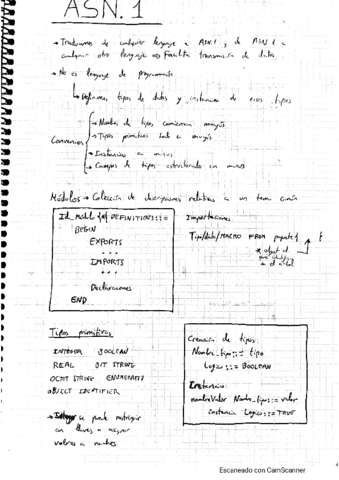 ASN.1
→ Traducimos de cualquier lenguaje a ASN.1 y de ASN.1 a
cualquier otro lenguaje Facilita transmisión de datos
→ No es lenguaje de programación
↳ Definimos tipos de datos y instancias de esos tipos
Convenios
→ Nombre de tipos comienzan mayús
→ Tipos primitivos todo a mayús
→ Instancias en minus
→ Campos de tipos estructurado en minus
Módulos → Colección de descripciones relativas a un tema común
DEFINITIONS::=
BEGIN
EXPORTS
...
IMPORTS
...
Declaraciones
END
Importaciones
Tipo/dato/MACRO FROM
Tipos primitivos
INTEGER BOOLEAN
REAL BIT STRING
OCTET STRING ENUMERATED
OBJECT IDENTIFIER
→ se puede restringir
en llaves o asignar
valores a nombres
Creación de tipos:
Nombre_tipo::= tipo
Logico::= BOOLEAN
Instancia:
nombreValor Nombre_tipo::= valor
instancia Logico::= TRUE
Escaneado con CamScanner